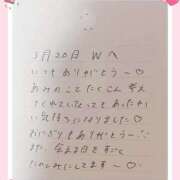 5月20日 Wへ
いつもありがとう〜♡
あみのことたくさん考え
てくれていたってもあったか
い気持ちになりました♡
おにぎりもありがとう〜
また会える日をすごく
たのしみにしてます〜♡